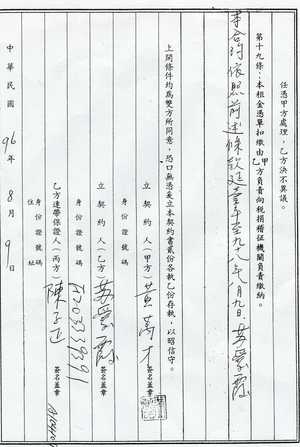 任憑甲方處理，乙方決不異議。
第十九條：本租金憑單扣繳由乙甲方負責向稅捐稽征機關負責繳納。
本合約依照前述條款延壹年至九八年八月九日．
上開條件均為雙方所同意，恐口無憑爰立本契約書貳份各執乙份存執，以昭信守。
立契約人（甲方） 黃萬才 簽名蓋章
身份證號碼
立契約人（乙方） 簽名蓋章
身份證號碼
乙方連帶保證人（丙方） 簽名蓋章
身份證號碼
住址
中華民國 96 年 8 月 9 日